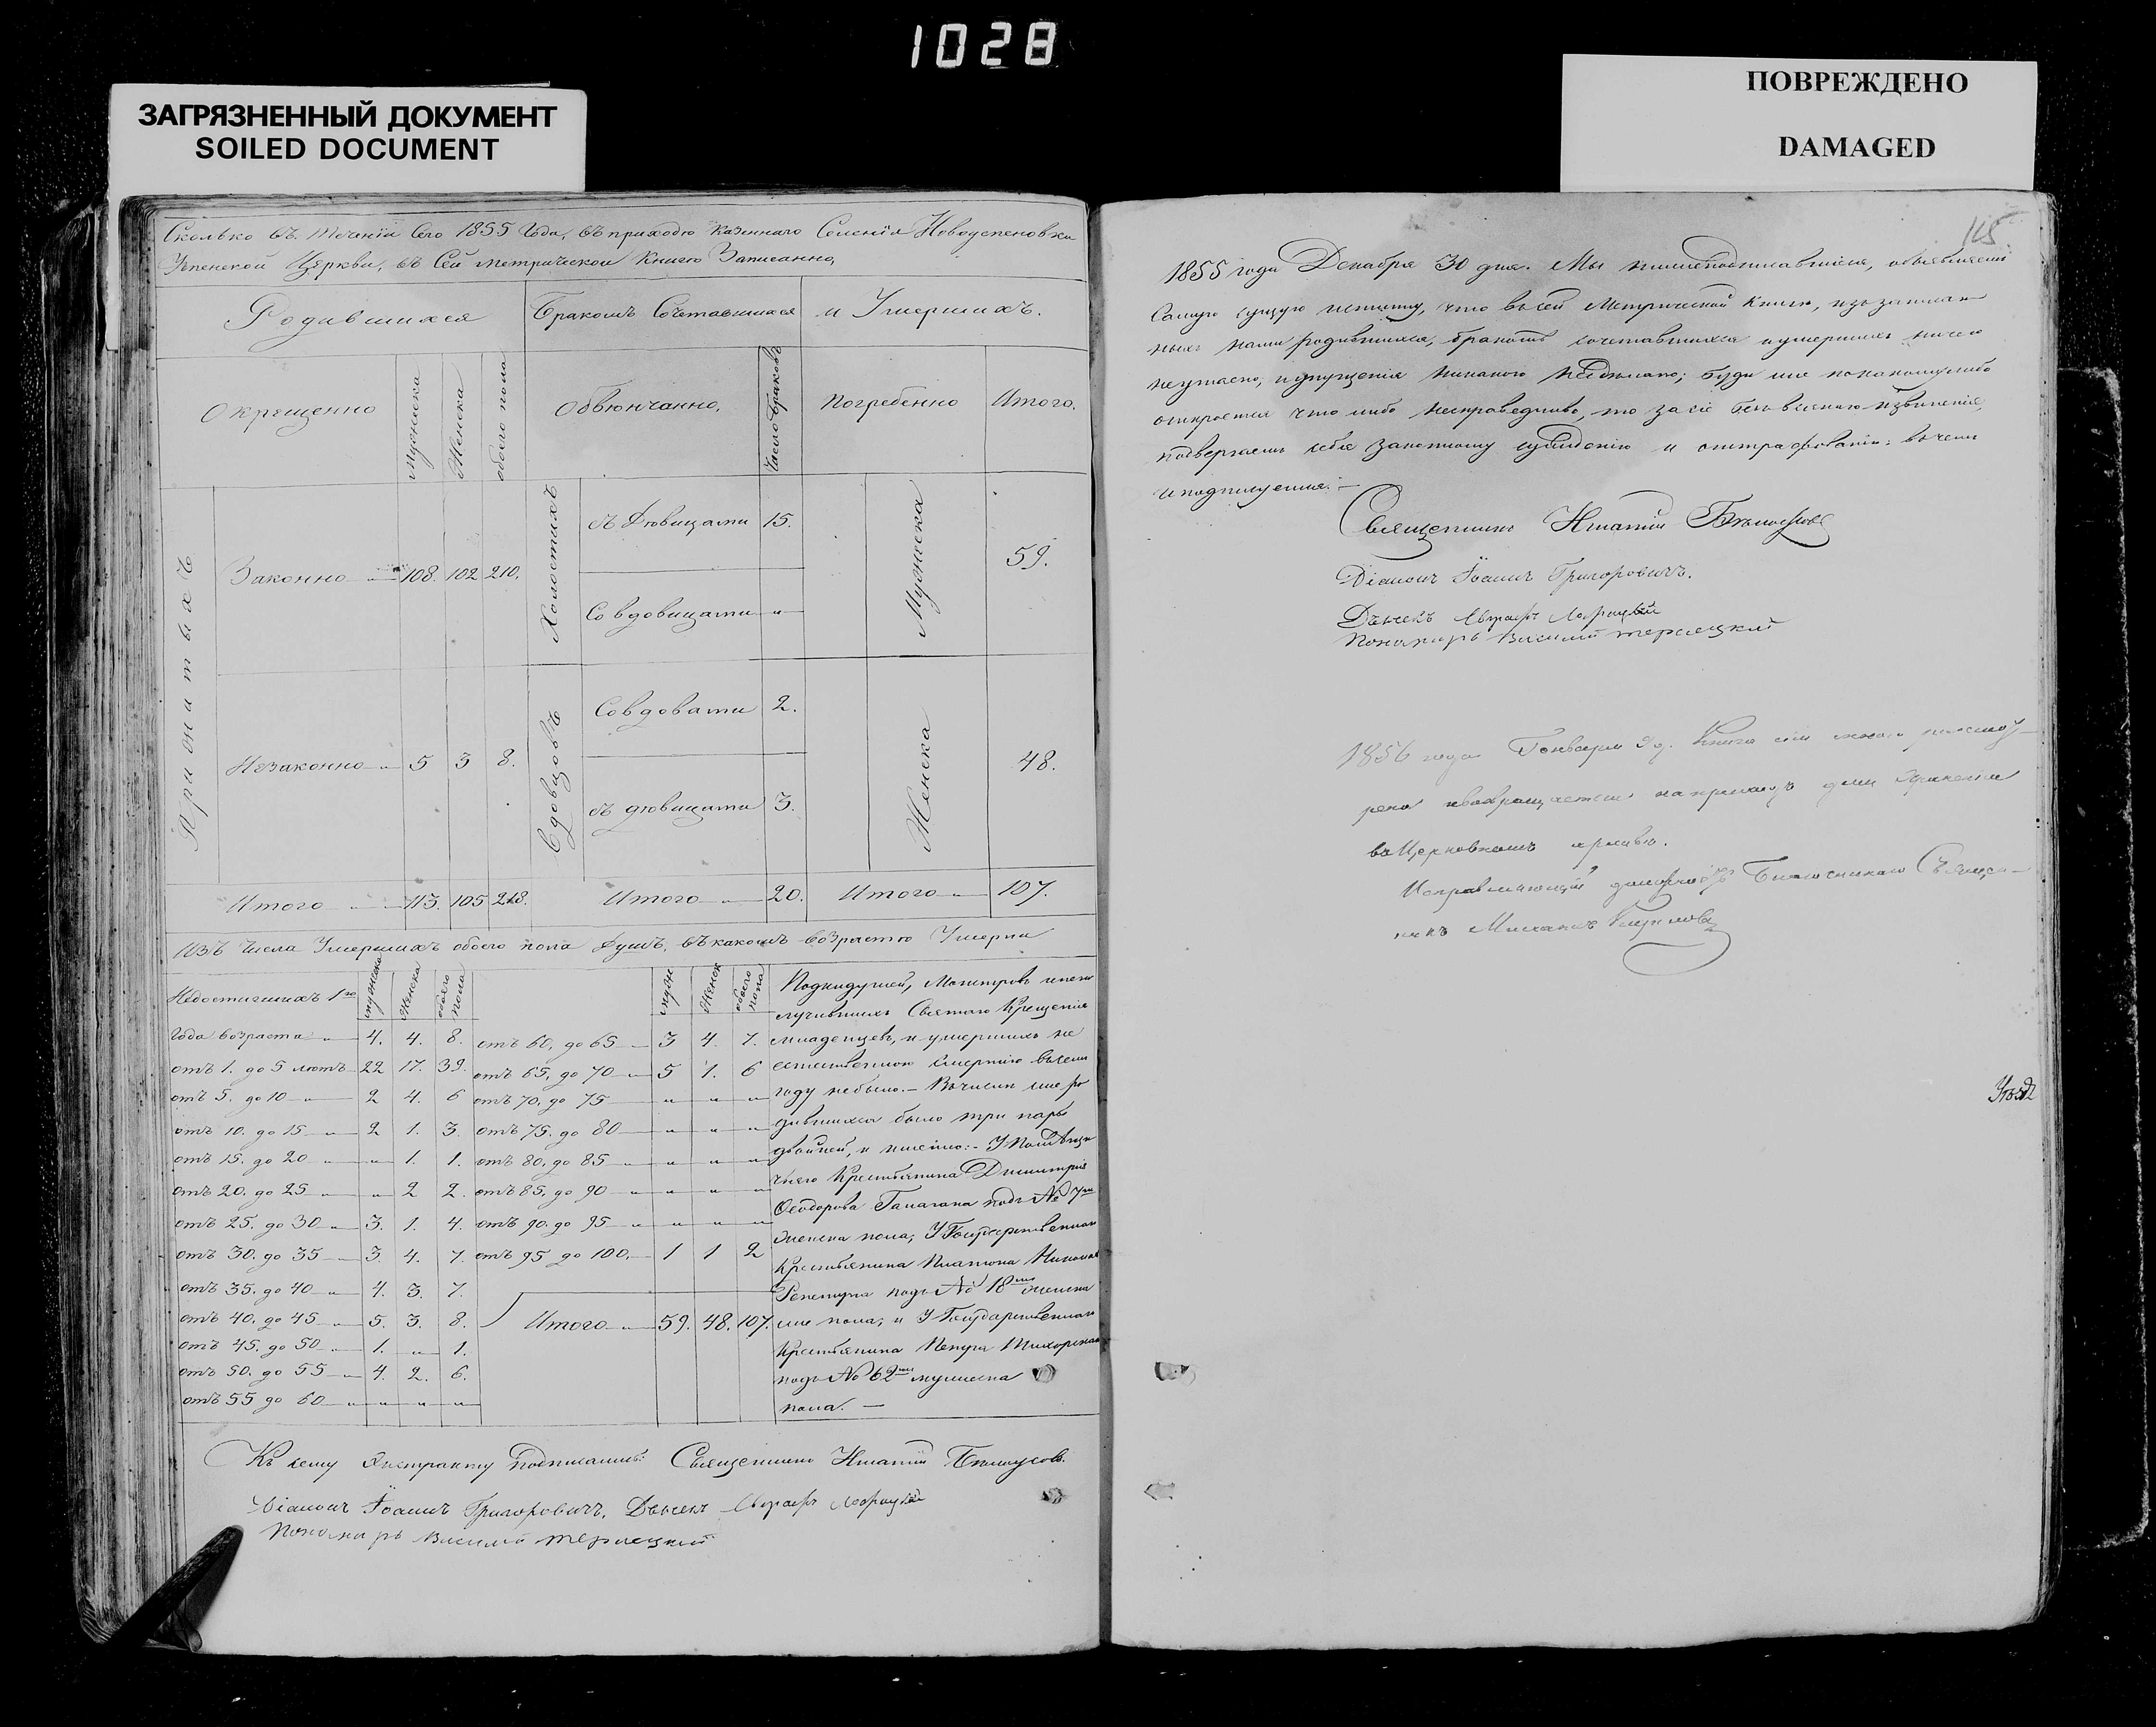 1028
ЗАГРЯЗНЕННЫЙ ДОКУМЕНТ
SOILED DOCUMENT
ПОВРЕЖДЕНО
DAMAGED
Сколько въ теченіи сего 1855 Года, въ приходѣ казеннаго Селенія Новоуспеновки
Успенской Церкви, въ сей метрической книгѣ Записанно,
Родившихся
Бракомъ Сочетавшихся
и Умершихъ.
Окрещенно
мужеска
Женска
обоего пола
Обвѣнчанно,
Число браковъ
Погребенно
Итого.
Законно 108. 102 210.
Холостихъ
съ Дѣвицами 15.
Со вдовицами "
Мужеска
59.
Незаконно 5 3 8.
Вдовцовъ
Со вдовами 2.
съ дѣвицами 3.
Женска
48.
Итого 113. 105 218. Итого 20. Итого 107.
Изъ числа Умершихъ обоего пола душъ, въ какомъ возрастѣ Умерли
Недостигшихъ 1го
мужеска
Женска
обоего пола
муж
Женск
обоего пола
года возраста 4. 4. 8. отъ 60. до 65 3 4. 7.
отъ 1. до 5 лѣтъ 22 17. 39. отъ 65. до 70 5 1. 6
отъ 5. до 10 2 4. 6 отъ 70. до 75 " " "
отъ 10. до 15 2 1. 3. отъ 75. до 80 " " "
отъ 15. до 20 " 1. 1. отъ 80. до 85 " " "
отъ 20. до 25 " 2 2. отъ 85. до 90 " " "
отъ 25. до 30 3. 1. 4. отъ 90. до 95 " " "
отъ 30. до 35 3. 4. 7. отъ 95 до 100. 1 1 2
отъ 35. до 40 4. 3. 7.
отъ 40. до 45 5. 3. 8. Итого 59. 48. 107.
отъ 45. до 50 1. " 1.
отъ 50. до 55 4. 2. 6.
отъ 55 до 60 " " "
Подкидушей, Монстровъ
лучившихъ Святаго Крещенія
младенцевъ, и умершихъ не
естественною смертію въ семъ
году небыло. — Въ числѣ же ро
дившихся было три пары
двойней, а именно: У
Крестьянина Димитрія
Ѳеодорова подъ № 7мъ
женска пола; У Государственнаго
Крестьянина Платона
подъ № 18мъ женска
же пола; и У Государственнаго
Крестьянина
подъ № 62мъ мужеска
пола. —
Къ сему Экстракту подписались: Священникъ Игнатій
Діаконъ Іоаннъ Григоровичъ. Дьячекъ
Пономарь Василій
115
1855 года Декабря 30 дня. Мы нижеподписавшіеся, объявляемъ
самую сущую истинну, что въ сей Метрической книгѣ, изъ записан
ныхъ нами родившихся, бракомъ сочетавшихся и умершихъ ничего
неутаено, и упущенія никакого несдѣлано; буде же по какому либо
откроется что либо несправедливо, то за сіе безъ всякаго извиненія,
подвергаемъ себя законному сужденію и оштрафованію: въ чемъ
и подпишемся. —
Священникъ Игнатій
Діаконъ Іоаннъ Григоровичъ.
Дьячекъ
Пономарь Василій
1856 года Генваря Книга сія мною разсмот
рена и возвращается на приходъ для храненія
въ Церковномъ архивѣ.
Исправляющій должность Благочиннаго Священ
никъ